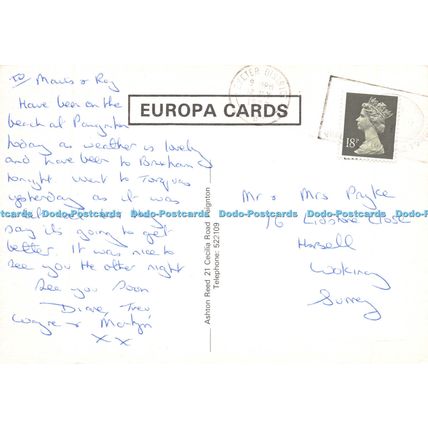 To Mavis & Roy
Have been on the
beach at Paignton
today as weather is lovely
and have been to Brixham
tonight went to Torquay
yesterday as it was
say it's going to get
better. It was nice to
see you the other night
See you Soon
Diane, Trev
Wayne & Martyn
x x
EUROPA CARDS
Ashton Reed 21 Cecilia Road Paignton
Telephone: 522109
EXETER DISTRICT
18P
Mr & Mrs Pryke
16 Close
Horsell
Woking
Surrey
Dodo-Postcards Dodo-Postcards Dodo-Postcards Dodo-Postcards